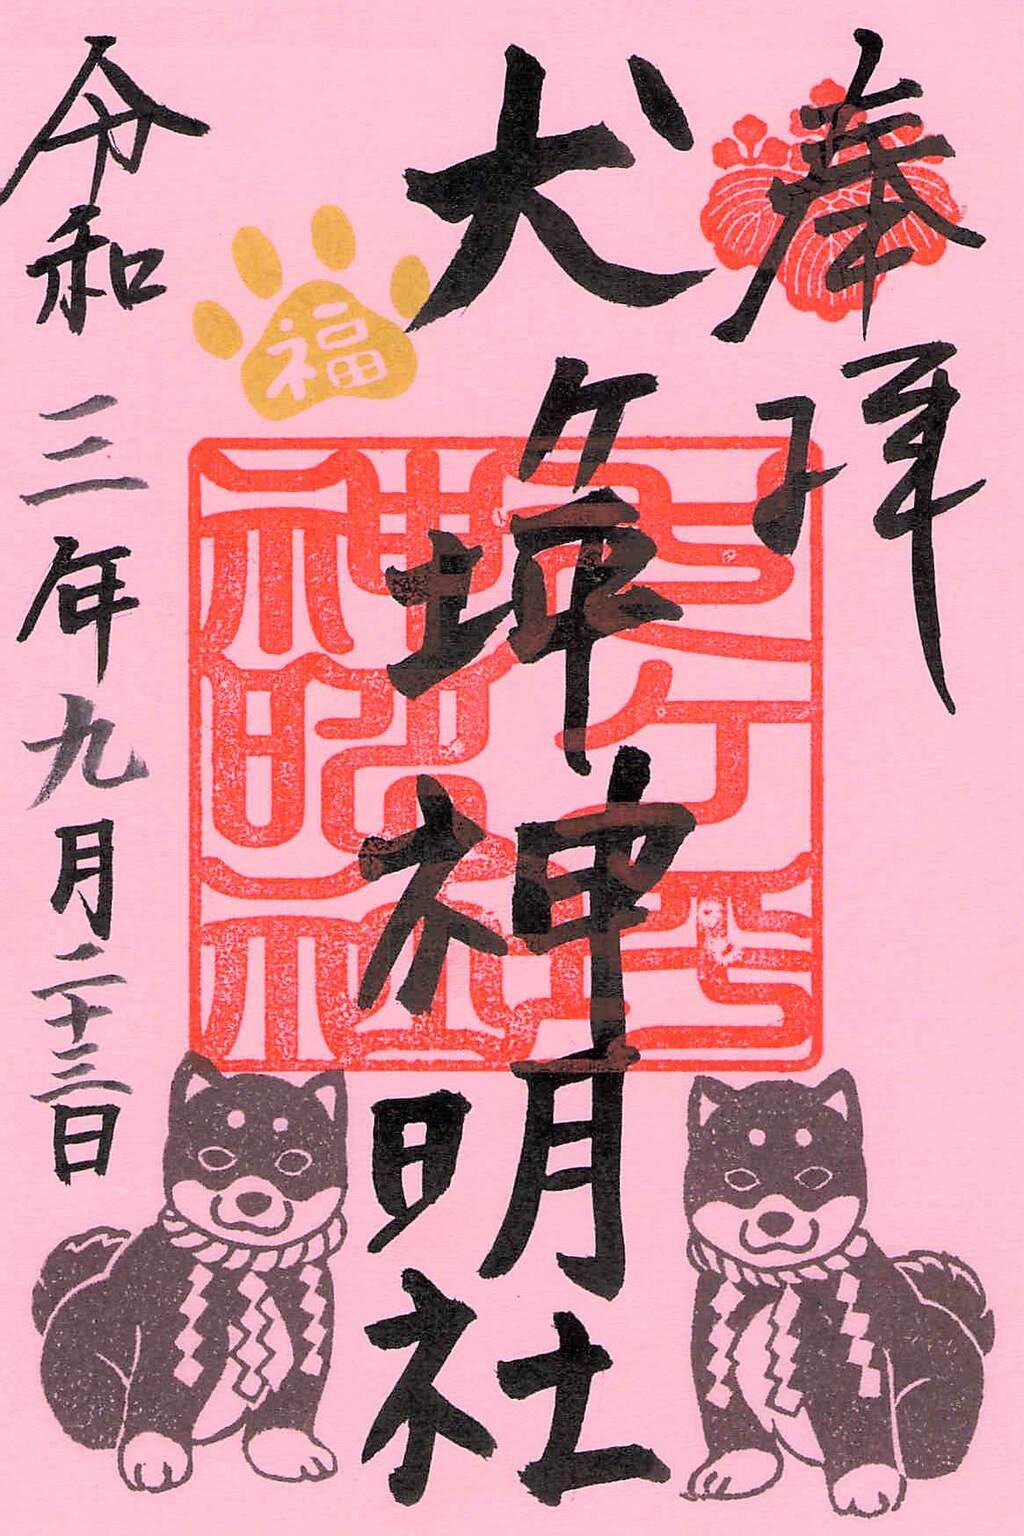 奉拝
犬ケ
神明社
福
令和三年九月二十三日